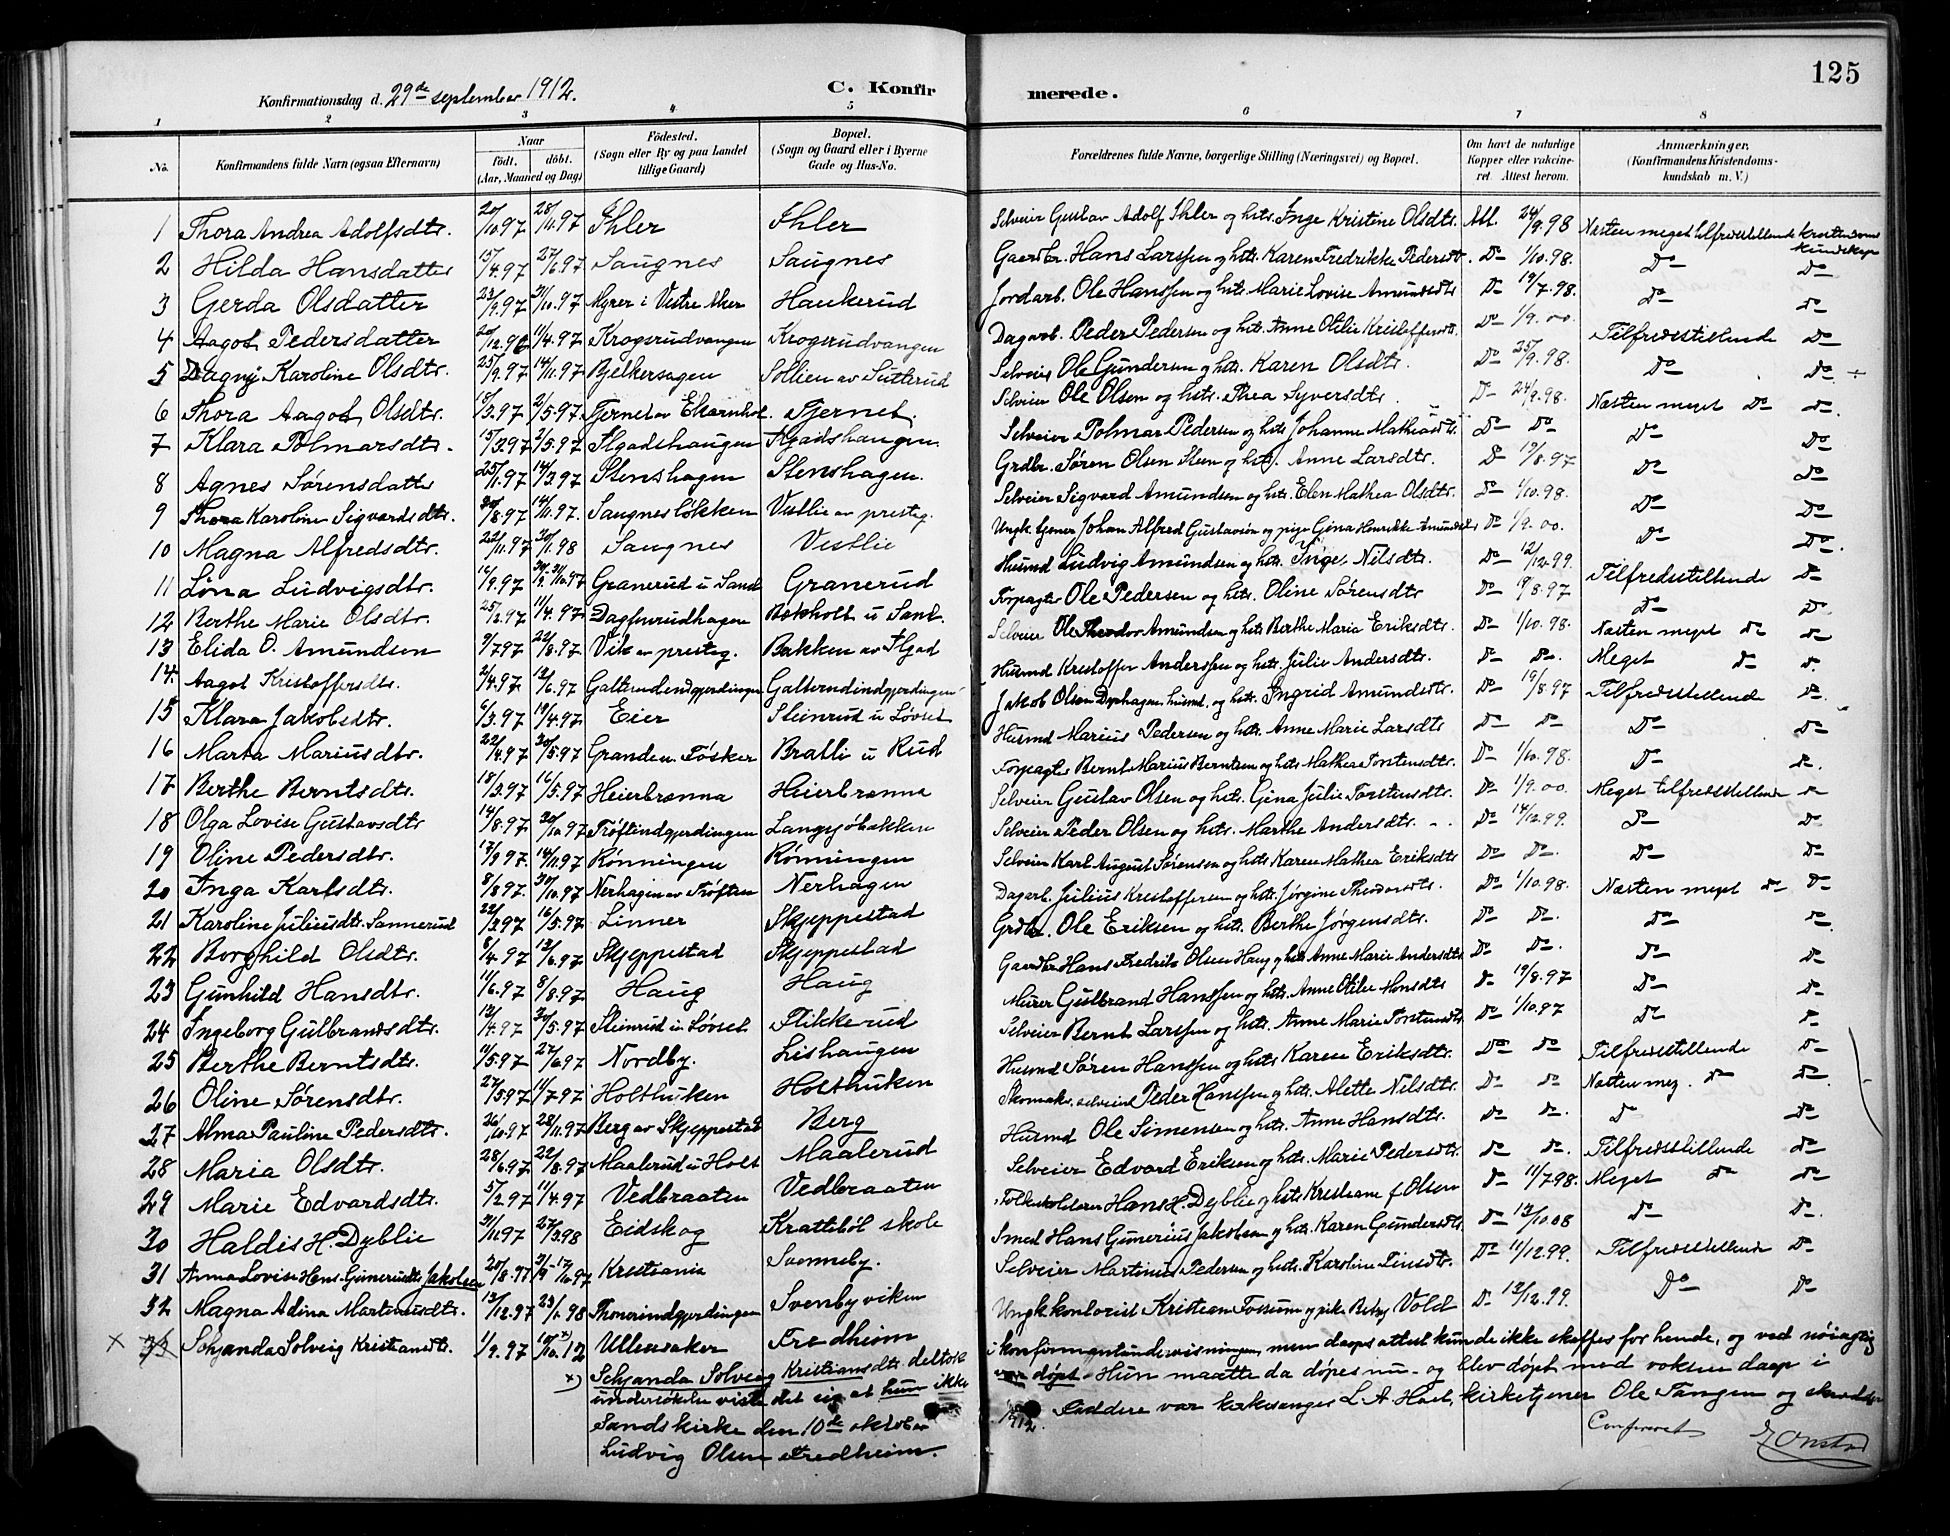 125
Konfirmationsdag d. 29de september 1912.
C. Konfirmerede.
1 2 3 4 5 6 7 8
No.
Konfirmandens fulde Navn (ogsaa Efternavn)
Naar
födt. döbt.
(Aar, Maaned og Dag)
Födested.
(Sogn eller By og paa Landet tillige Gaard)
Bopæl.
(Sogn og Gaard eller i Byerne Gade og Hus-No.
Forældrenes fulde Navne, borgerlige Stilling (Næringsvei) og Bopæl.
Om havt de naturlige Kopper eller vakcineret. Attest herom.
Anmærkninger.
(Konfirmandens Kristendomskundskab m. V.)
1 Thora Andrea Adolfsdtr. 20/10.97 28/11.97 Ihler Ihler Selveier Gustav Adolf Ihler og hstr. Inge Kristine Olsdtr. Att. 24/9.98 Næsten meget tilfredsstillende kristendomskundskap
2 Hilda Hansdatter 15/4.97 27/6.97 Saugnes Saugnes Gaardbr. Hans Larssen og hstr. Karen Fredrikke Pedersdtr. Do 1/10.98. Do Do
3 Gerda Olsdatter 23/9.97 31/10.97 Myrer i Vestre Aker Haukerud Jordarb. Ole Hanssen og hstr. Marie Lovise Amundsdtr Do 19/7.98. Do Do
4 Aagot Pedersdatter 20/12.96 11/4.97 Krogerudvangen Krogerudvangen Dagarb. Peder Pedersen og hstr. Anne Otilie Kristoffersdtr. Do 1/9.00. Tilfredsstillende Do
5 Dagny Karoline Olsdtr. 25/9.97 14/11.97 Bjelkersagen Sollien av Sutterud Selveier Ole Gundersen og hstr. Karen Olsdtr. Do 25/9.98. Do Do
6 Thora Aagot Olsdtr. 2/5.97 Tjernet av Ekornhol. Tjernet. Selveier Ole Olsen og hstr. Thea Syversdtr. Do 24/9.98. Næsten meget Do Do
7 Klara Polmarsdtr. 15/3.97 2/5.97 Flgadshaugen Flgadshaugen Selveier Polmar Pedersen og hstr. Johanne Mathiasdtr Do Do Do Do
8 Agnes Sørensdatter 25/1.97 14/3.97 Stenshagen Stenshagen. Grdbr. Søren Olsen Steen og hstr. Anne Larsdtr. Do 19/8.97 Do Do
9 Thora Karoline Sigvardsdtr. 14/11.97. Saugnesløkken Vestlie av presteg. Selveier Sigvard Amundsen og hstr. Elen Mathea Olsdtr. Do 1/10.98. Do Do
10 Magna Alfredsdtr. 22/11.97 30/1.98 Saugnes Vestlie Ungk. tjener Johan Alfred Gustavsen og pige Gina Henrikke Amundsdtr Do 1/9.00. Do Do
11 Lina Ludvigsdtr. Granerud u Sand Granerud Husmd Ludvig Amundsen og hstr. Inger Nilsdtr. Do 12/12.99. Tilfredsstillende Do
12 Berthe Marie Olsdtr. 25/2.97 11/4.97 Dagfinrudhagen Bekholt u Sand. Forpagter Ole Pedersen og hstr. Oline Sørensdtr Do 19/8.97 Do Do
13 Elida O. Amundsen 9/7.97 22/8.97. Vik av presteg. Bakken av Flgad Selveier Ole Theodor Amundsen og hstr. Berthe Maria Eriksdtr. Do 1/10.98. Næsten meget Do Do
14. Aagot Kristoffersdtr. 2/4.97. 12/6.97 Galterudindgjerdingen Galterudindgjerdingen Husmd Kristoffer Anderssen og hstr. Julie Andersdtr. Do Do. Meget Do Do
15 Klara Jakobsdtr. 6/3.97 19/4.97. Eier Steinrud u Løvset Jakob Olsen Dyphagen husmd. og hstr. Ingrid Amundsdtr. Do 19/8.97 Tilfredsstillende Do
16 Marta Mariusdtr. 22/4.97 30/5.97 Granden u. Fösker Bratli u Rud Husmd Marius Pedersen og hstr. Anne Marie Larsdtr Do Do Do Do
17 Berthe Berntsdtr. 18/3.97 16/5.97 Heierbrænna Heierbrænna Forpagter Bernt Marius Berntsen og hstr. Mathea Torstensdtr. Do 1/10.98. Do Do
18 Olga Lovise Gustavsdtr 14/8.97 Trøftindgjerdingen Langsjøbakken Selveier Gustav Olsen og hstr. Gina Julie Torstensdtr. Do 1/9.00. Meget tilfredsstillende Do
19 Oline Pedersdtr. 17/9.97. 14/11.97 Rønningen Rønningen Selveier Peder Olsen og hstr. Marthe Andersdtr. Do 14/12.99. Do Do
20 Inga Karlsdtr. 8/8.97. 30/10.97 Nerhagen av Trøften Nerhagen Selveier Karl August Sørensen og hstr. Karen Mathea Eriksdtr Do Do. Do Do
21 Karoline Juliusdtr. Sannerud 22/3.97 16/5.97 Linner Skjeppestad Dagarb. Julius Kristoffersen og hstr. Jørgine Theodorsdtr. Do 1/10.98. Næsten meget Do Do
22 Borghild Olsdtr. 8/4.97 13/6.97 Skjeppestad Skjeppestad Grdbr. Ole Eriksen og hstr. Berthe Jørgensdtr. Do Do. Do Do
23 Gunhild Hansdtr. 11/6.97 8/8.97 Haug Haug Gaardbr Hans Fredrik Olsen Haug og hstr. Anne Marie Andersdtr Do Do. Do Do
24 Ingeborg Gulbrandsdtr. 12/4.97 30/5.97 Steinrud u. Løvset Flikkerud Murer Gulbrand Hanssen og hstr. Anne Otilie Monsdtr Do 19/8.97 Do Do
25 Berthe Berntsdtr. 11/5.97 27/6.97 Nordby. Lishaugen Selveier Bernt Larssen og hstr. Anne Marie Torstensdtr. Do 1/10.97 Do Do
26 Oline Sørensdtr. 27/5.97 11/7.97 Holthuken Holthuken Husmd Søren Hanssen og hstr. Karen Eriksdtr. Do Do Tilfredsstillende Do
27 Alma Pauline Pedersdtr. 26/10.97 28/11.97 Berg av Skjeppestad Berg Skomaker, selveier Peder Hanssen og hstr. Alette Nilsdtr. Do Do Næsten meg. Do Do
28 Maria Olsdtr. 28/6.97 22/8.97 Maalerud u Holt Maalerud Husmd Ole Simensen og hstr. Anne Hansdtr. Do Do. Do Do
29 Marie Edvardsdtr. 5/2.97 11/4.97 Vedbraaten Vedbraaten Selveier Edvard Eriksen og hstr. Marie Pedersdtr. Do Do. Tilfredsstillende Do
30 Haldis H. Dyblie 27/3.98 Eidskog Kratteböl skole Folkeskolelærer Hans H. Dyblie og hstr. Kristiane f. Olsen Do 11/7.98. Meget Do Do
31 Anna Lovise Hans-Gunerusdtr Jakobsen 20/8.97 Kristiania Svenneby. Smed Hans Gunerius Jakobsen og hstr. Karen Gundersdtr. Do 13/10.08 Do Do.
32 Magna Adina Martinusdtr. 13/12.97 23/1.98 Thonerindgjerdingen Svenbyviken Selveier Martinus Pedersen og hstr. Karoline Linsdtr. Do 11/12.99. Tilfredsstillende Do
x 33 Schjanda Solveig Kristiansdtr. 1/9.97 10/10.12 x) Ullensaker Fredheim Ungk. kontorist Kristian Fossum og pike Betsy Vold Do 12/12.99. Do Do
x) Schjanda Solveig Kristiansdtr. deltok i konfirmantundervisningen, men daapsattest kunde ikke skaffes for hende, og ved nöiagtig
undersøkelse viste det sig at hun ikke var döpt. Hun maatte da döpes nu - og blev döpt med voksen daap i
Sands kirke den 10de oktober 1912. Faddere var kirkesanger L. A. Holt, kirketjener Ole Tangen og skrædder
Ludvig Olsen Fredheim.
Confereret